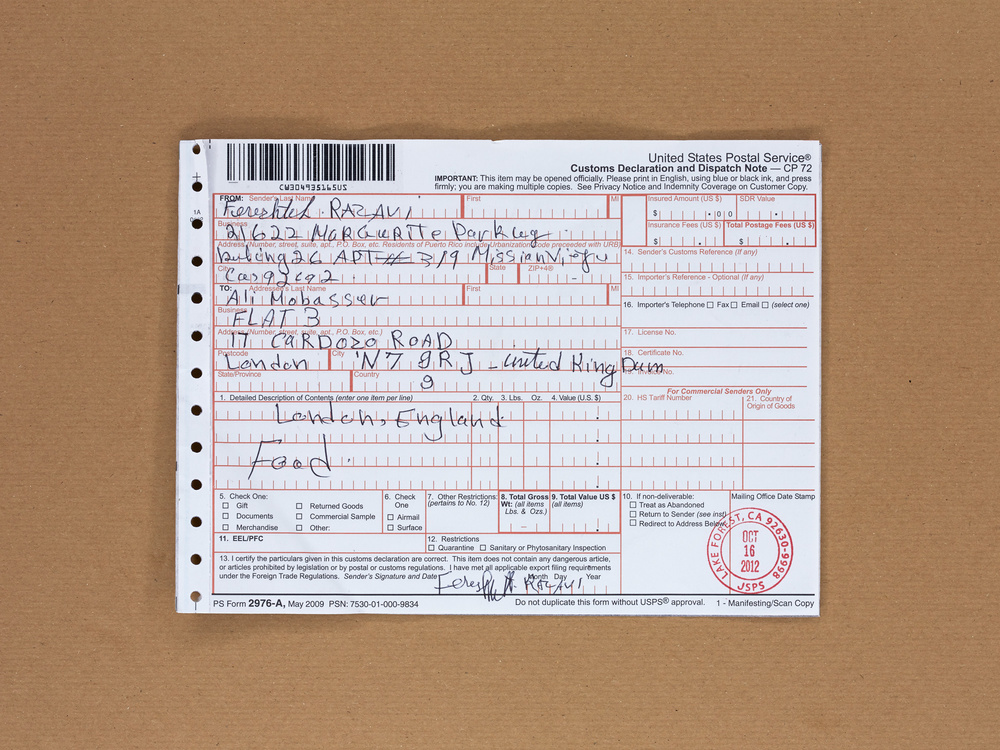 United States Postal Service®
Customs Declaration and Dispatch Note — CP 72
IMPORTANT: This item may be opened officially. Please print in English, using blue or black ink, and press
firmly; you are making multiple copies. See Privacy Notice and Indemnity Coverage on Customer Copy.
CW304935165US
FROM: Sender's Last Name First MI
Fereshteh RAZAVI
Business
21622 MARGUERITE Parkway
Address (Number, street, suite, apt., P.O. Box, etc. Residents of Puerto Rico include Urbanization code preceded with URB)
26 APT # 319 Mission Viejo
City State ZIP+4®
TO: Addressee's Last Name First MI
Ali Mobasser
Business
FLAT 3
Address (Number, street, suite, apt., P.O. Box, etc.)
17 CARDOZO ROAD
Postcode City
London N7 9RJ - united King Dum
State/Province Country
9
Insured Amount (US $) SDR Value
$ . 0 0 .
Insurance Fees (US $) Total Postage Fees (US $)
$ . $ .
14. Sender's Customs Reference (If any)
15. Importer's Reference - Optional (If any)
16. Importer's Telephone Fax Email (select one)
17. License No.
18. Certificate No.
19. Invoice No.
For Commercial Senders Only
20. HS Tariff Number 21. Country of
Origin of Goods
1. Detailed Description of Contents (enter one item per line) 2. Qty. 3. Lbs. Oz. 4. Value (U.S. $)
London, England
Food.
5. Check One:
Gift Returned Goods
Documents Commercial Sample
Merchandise Other:
6. Check
One
Airmail
Surface
7. Other Restrictions:
(pertains to No. 12)
8. Total Gross
Wt: (all items
Lbs. & Ozs.)
9. Total Value US $
(all items)
10. If non-deliverable:
Treat as Abandoned
Return to Sender (see inst)
Redirect to Address Below
Mailing Office Date Stamp
LAKE FOREST, CA 92630-9998
OCT
16
2012
USPS
11. EEL/PFC
12. Restrictions
Quarantine Sanitary or Phytosanitary Inspection
13. I certify the particulars given in this customs declaration are correct. This item does not contain any dangerous article,
or articles prohibited by legislation or by postal or customs regulations. I have met all applicable export filing requirements
under the Foreign Trade Regulations. Sender's Signature and Date Month Day Year
Fereshteh RAZAVI
PS Form 2976-A, May 2009 PSN: 7530-01-000-9834
Do not duplicate this form without USPS® approval. 1 - Manifesting/Scan Copy